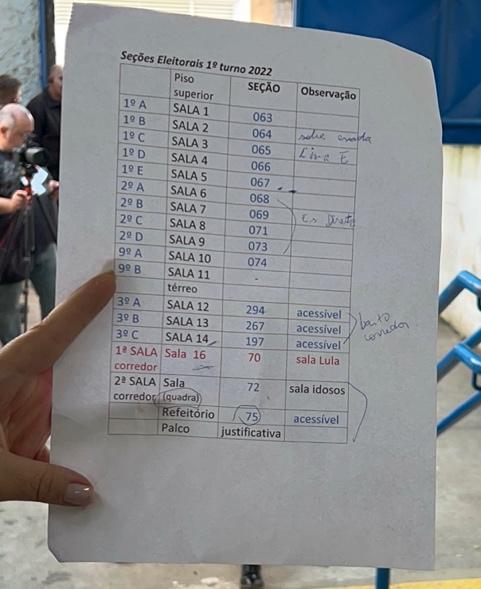 Seções Eleitorais 1º turno 2022
Piso superior SEÇÃO Observação
1º A SALA 1 063
1º B SALA 2 064
1º C SALA 3 065
1º D SALA 4 066
1º E SALA 5 067
2º A SALA 6 068
2º B SALA 7 069
2º C SALA 8 071
2º D SALA 9 073
9º A SALA 10 074
9º B SALA 11 -
térreo
3º A SALA 12 294 acessível
3º B SALA 13 267 acessível
3º C SALA 14 197 acessível
corredor
1ª SALA corredor Sala 16 70 sala Lula
2ª SALA corredor Sala (quadra) 72 sala idosos
Refeitório 75 acessível
Palco justificativa